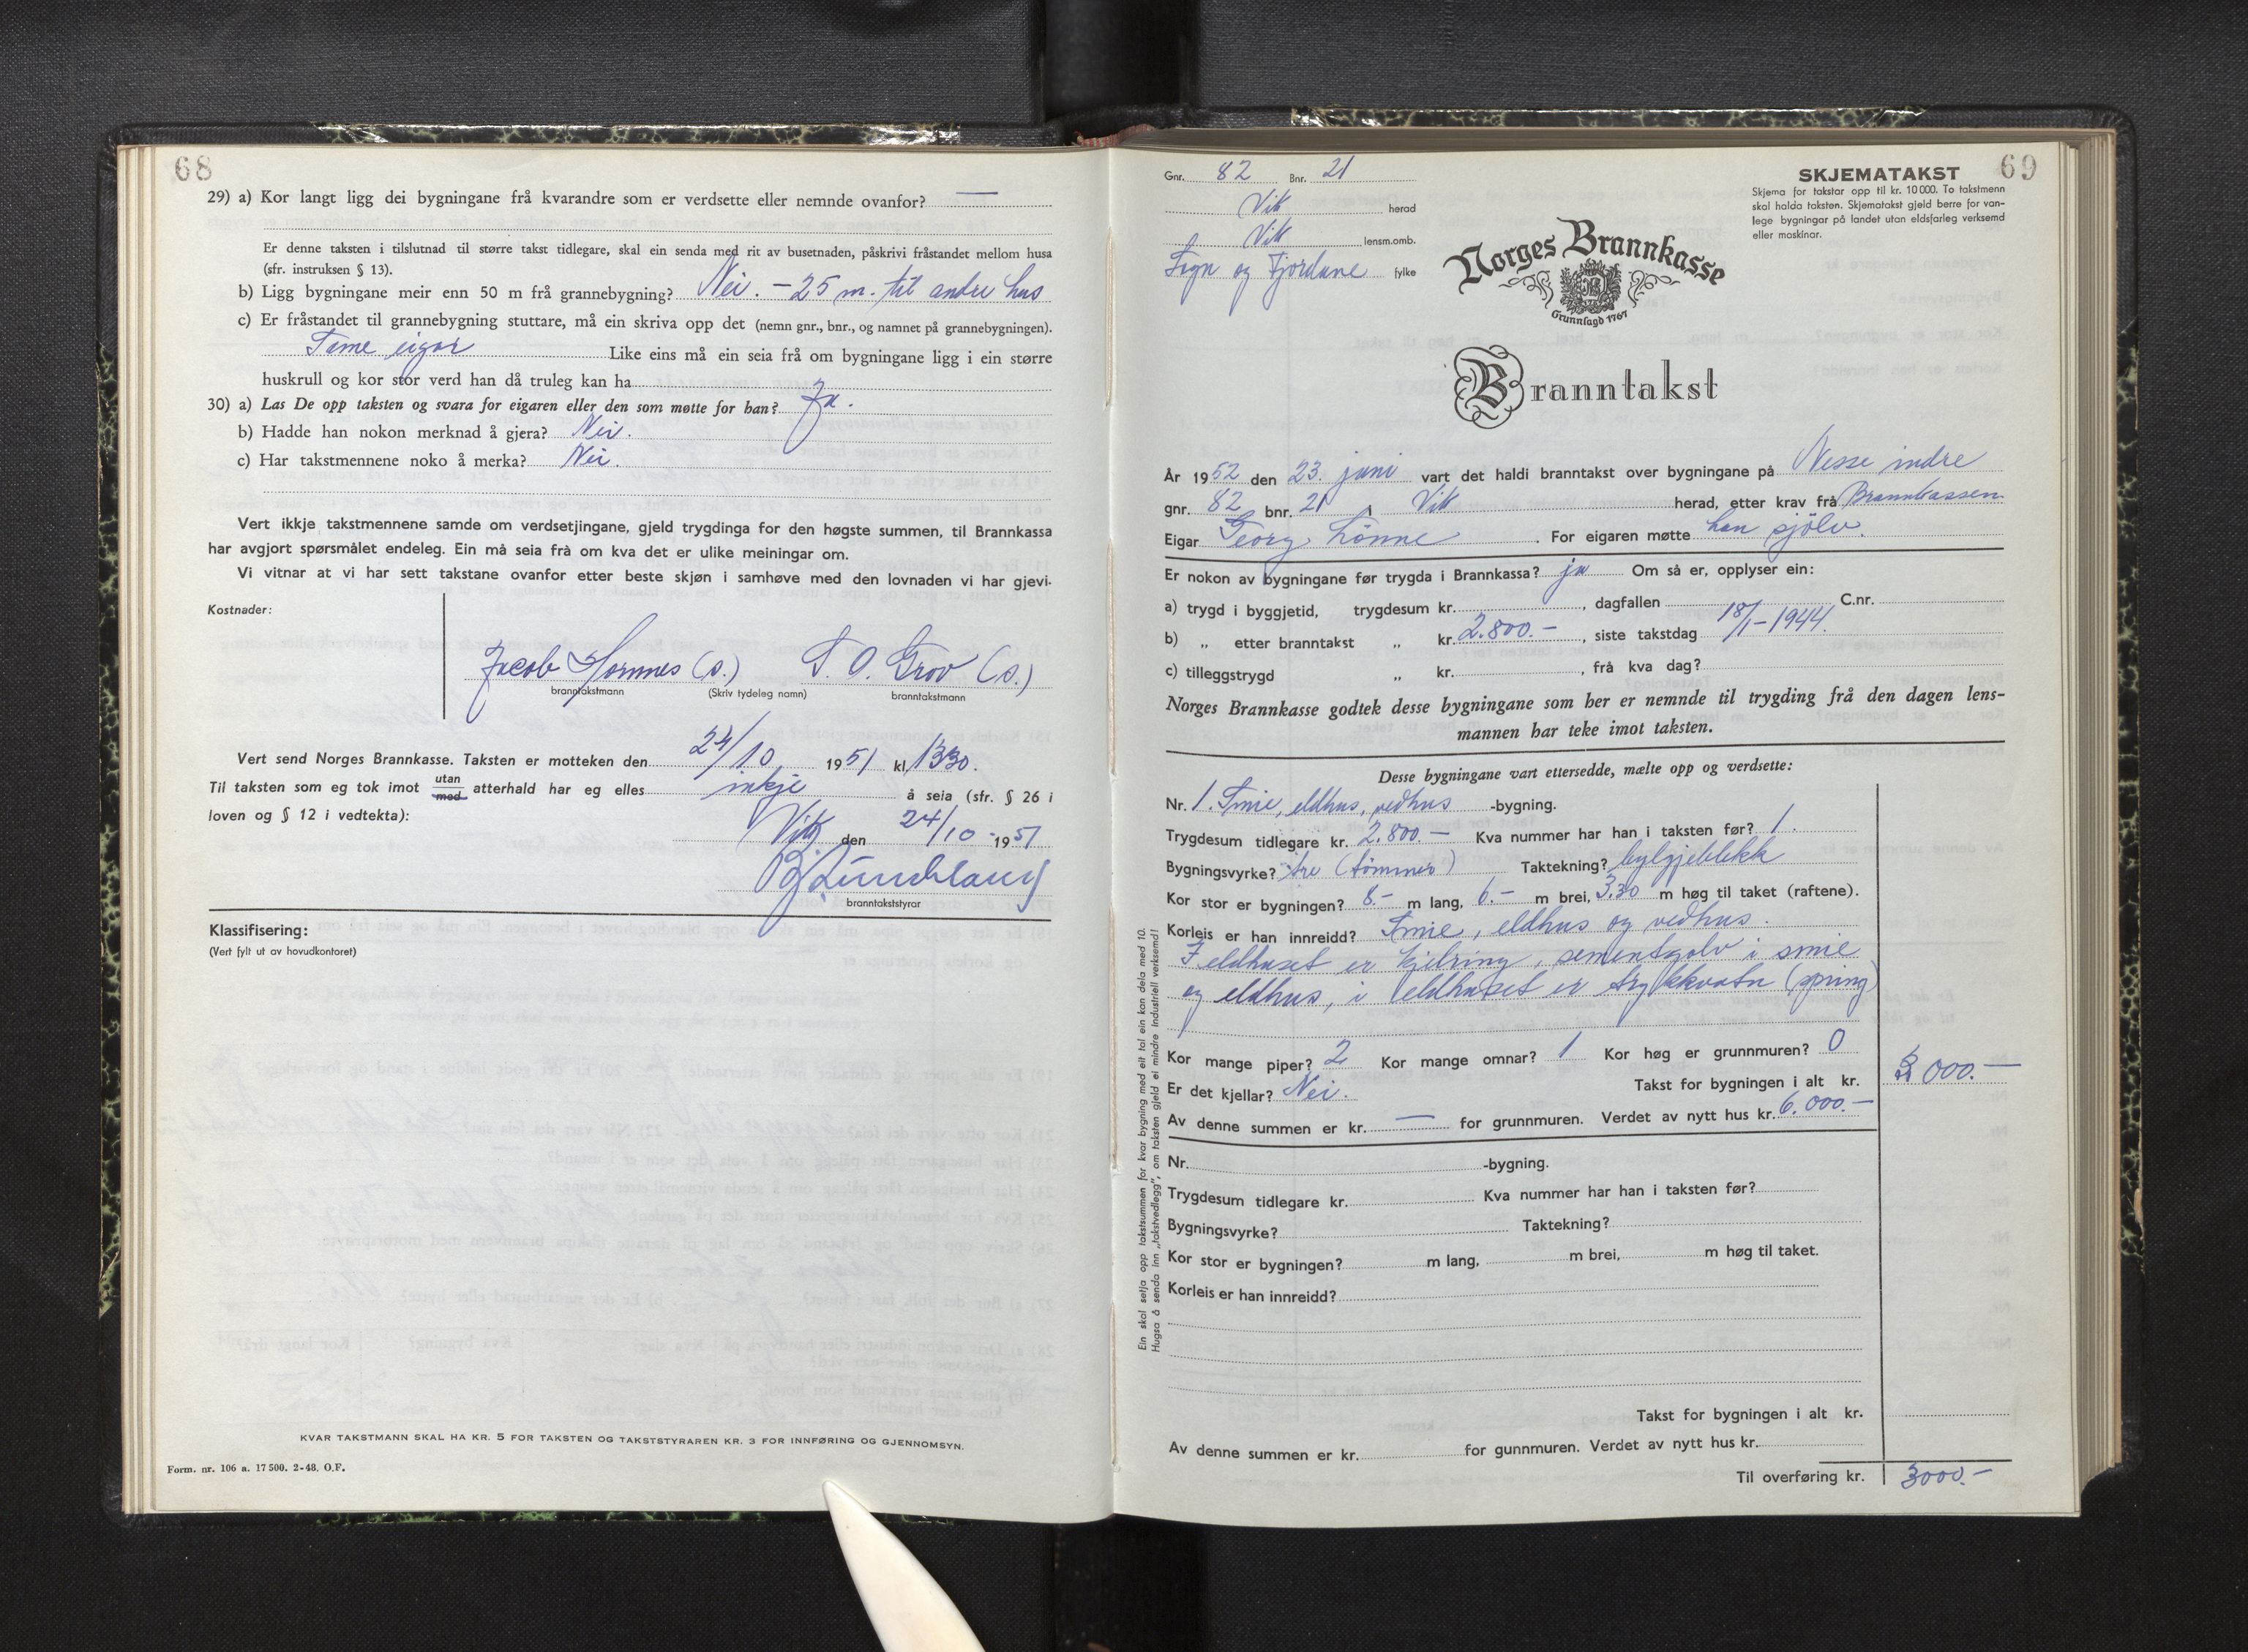 68
29) a) Kor langt ligg dei bygningane frå kvarandre som er verdsette eller nemnde ovanfor? —
Er denne taksten i tilslutnad til større takst tidlegare, skal ein senda med rit av busetnaden, påskrivi fråstandet mellom husa
(sfr. instruksen § 13).
b) Ligg bygningane meir enn 50 m frå grannebygning? Nei. – 25 m. til andre hus
c) Er fråstandet til grannebygning stuttare, må ein skriva opp det (nemn gnr., bnr., og namnet på grannebygningen).
Same eigar Like eins må ein seia frå om bygningane ligg i ein større
huskrull og kor stor verd han då truleg kan ha
30) a) Las De opp taksten og svara for eigaren eller den som møtte for han? Ja.
b) Hadde han nokon merknad å gjera? Nei.
c) Har takstmennene noko å merka? Nei.
Vert ikkje takstmennene samde om verdsetjingane, gjeld trygdinga for den høgste summen, til Brannkassa
har avgjort spørsmålet endeleg. Ein må seia frå om kva det er ulike meiningar om.
Vi vitnar at vi har sett takstane ovanfor etter beste skjøn i samhøve med den lovnaden vi har gjevi.
Kostnader:
Jacob Hornnes (s.) S. O. Grov (s.)
branntakstmann (Skriv tydeleg namn) branntakstmann
Vert send Norges Brannkasse. Taksten er motteken den 24/10 1951 kl. 1330.
Til taksten som eg tok imot utan/med atterhald har eg elles inkje å seia (sfr. § 26 i
loven og § 12 i vedtekta):
Vik den 24/10 1951
branntakststyrar
Klassifisering:
(Vert fylt ut av hovudkontoret)
KVAR TAKSTMANN SKAL HA KR. 5 FOR TAKSTEN OG TAKSTSTYRAREN KR. 3 FOR INNFØRING OG GJENNOMSYN.
Form. nr. 106 a. 17 500. 2-48. O.F.
69
Gnr. 82 Bnr. 21
Vik herad
Vik lensm.omb.
Sogn og Fjordane fylke
SKJEMATAKST
Skjema for takstar opp til kr. 10 000. To takstmenn
skal halda taksten. Skjematakst gjeld berre for van-
lege bygningar på landet utan eldsfarleg verksemd
eller maskinar.
Norges Brannkasse
Grunnlagd 1767
Branntakst
År 1952 den 23. juni vart det haldi branntakst over bygningane på Nesse indre
gnr. 82 bnr. 21 i Vik herad, etter krav frå Brannkassen
Eigar Georg Lønne . For eigaren møtte han sjölv.
Er nokon av bygningane før trygda i Brannkassa? ja Om så er, opplyser ein:
a) trygd i byggjetid, trygdesum kr. , dagfallen C.nr.
b) „ etter branntakst „ kr. 2.800.– , siste takstdag 18/1–1944.
c) tilleggstrygd „ kr. , frå kva dag?
Norges Brannkasse godtek desse bygningane som her er nemnde til trygding frå den dagen lens-
mannen har teke imot taksten.
Desse bygningane vart ettersedde, mælte opp og verdsette:
Nr. 1. Smie, eldhus, vedhus -bygning.
Trygdesum tidlegare kr. 2.800.– Kva nummer har han i taksten før? 1.
Bygningsvyrke? tre (tømmer) Taktekning? bylgjeblekk
Kor stor er bygningen? 8.– m lang, 6.– m brei, 3,30 m høg til taket (raftene).
Korleis er han innreidd? Smie, eldhus og vedhus.
I eldhuset er kjelring, sementgolv i smie
og eldhus, i eldhuset er trykkvatn (spring)
Kor mange piper? 2 Kor mange omnar? 1 Kor høg er grunnmuren? 0
Er det kjellar? Nei. Takst for bygningen i alt kr. 3000.–
Av denne summen er kr. — for grunnmuren. Verdet av nytt hus kr. 6.000.–
Nr. -bygning.
Trygdesum tidlegare kr. Kva nummer har han i taksten før?
Bygningsvyrke? Taktekning?
Kor stor er bygningen? m lang, m brei, m høg til taket.
Korleis er han innreidd?
Takst for bygningen i alt kr.
Av denne summen er kr. for gunnmuren. Verdet av nytt hus kr.
Til overføring kr. 3000.–
Ein skal setja opp takstsummen for kvar bygning med eit tal ein kan dela med 10.
Hugsa å senda inn „takstvedlegg", om taksten gjeld ei mindre industriell verksemd!